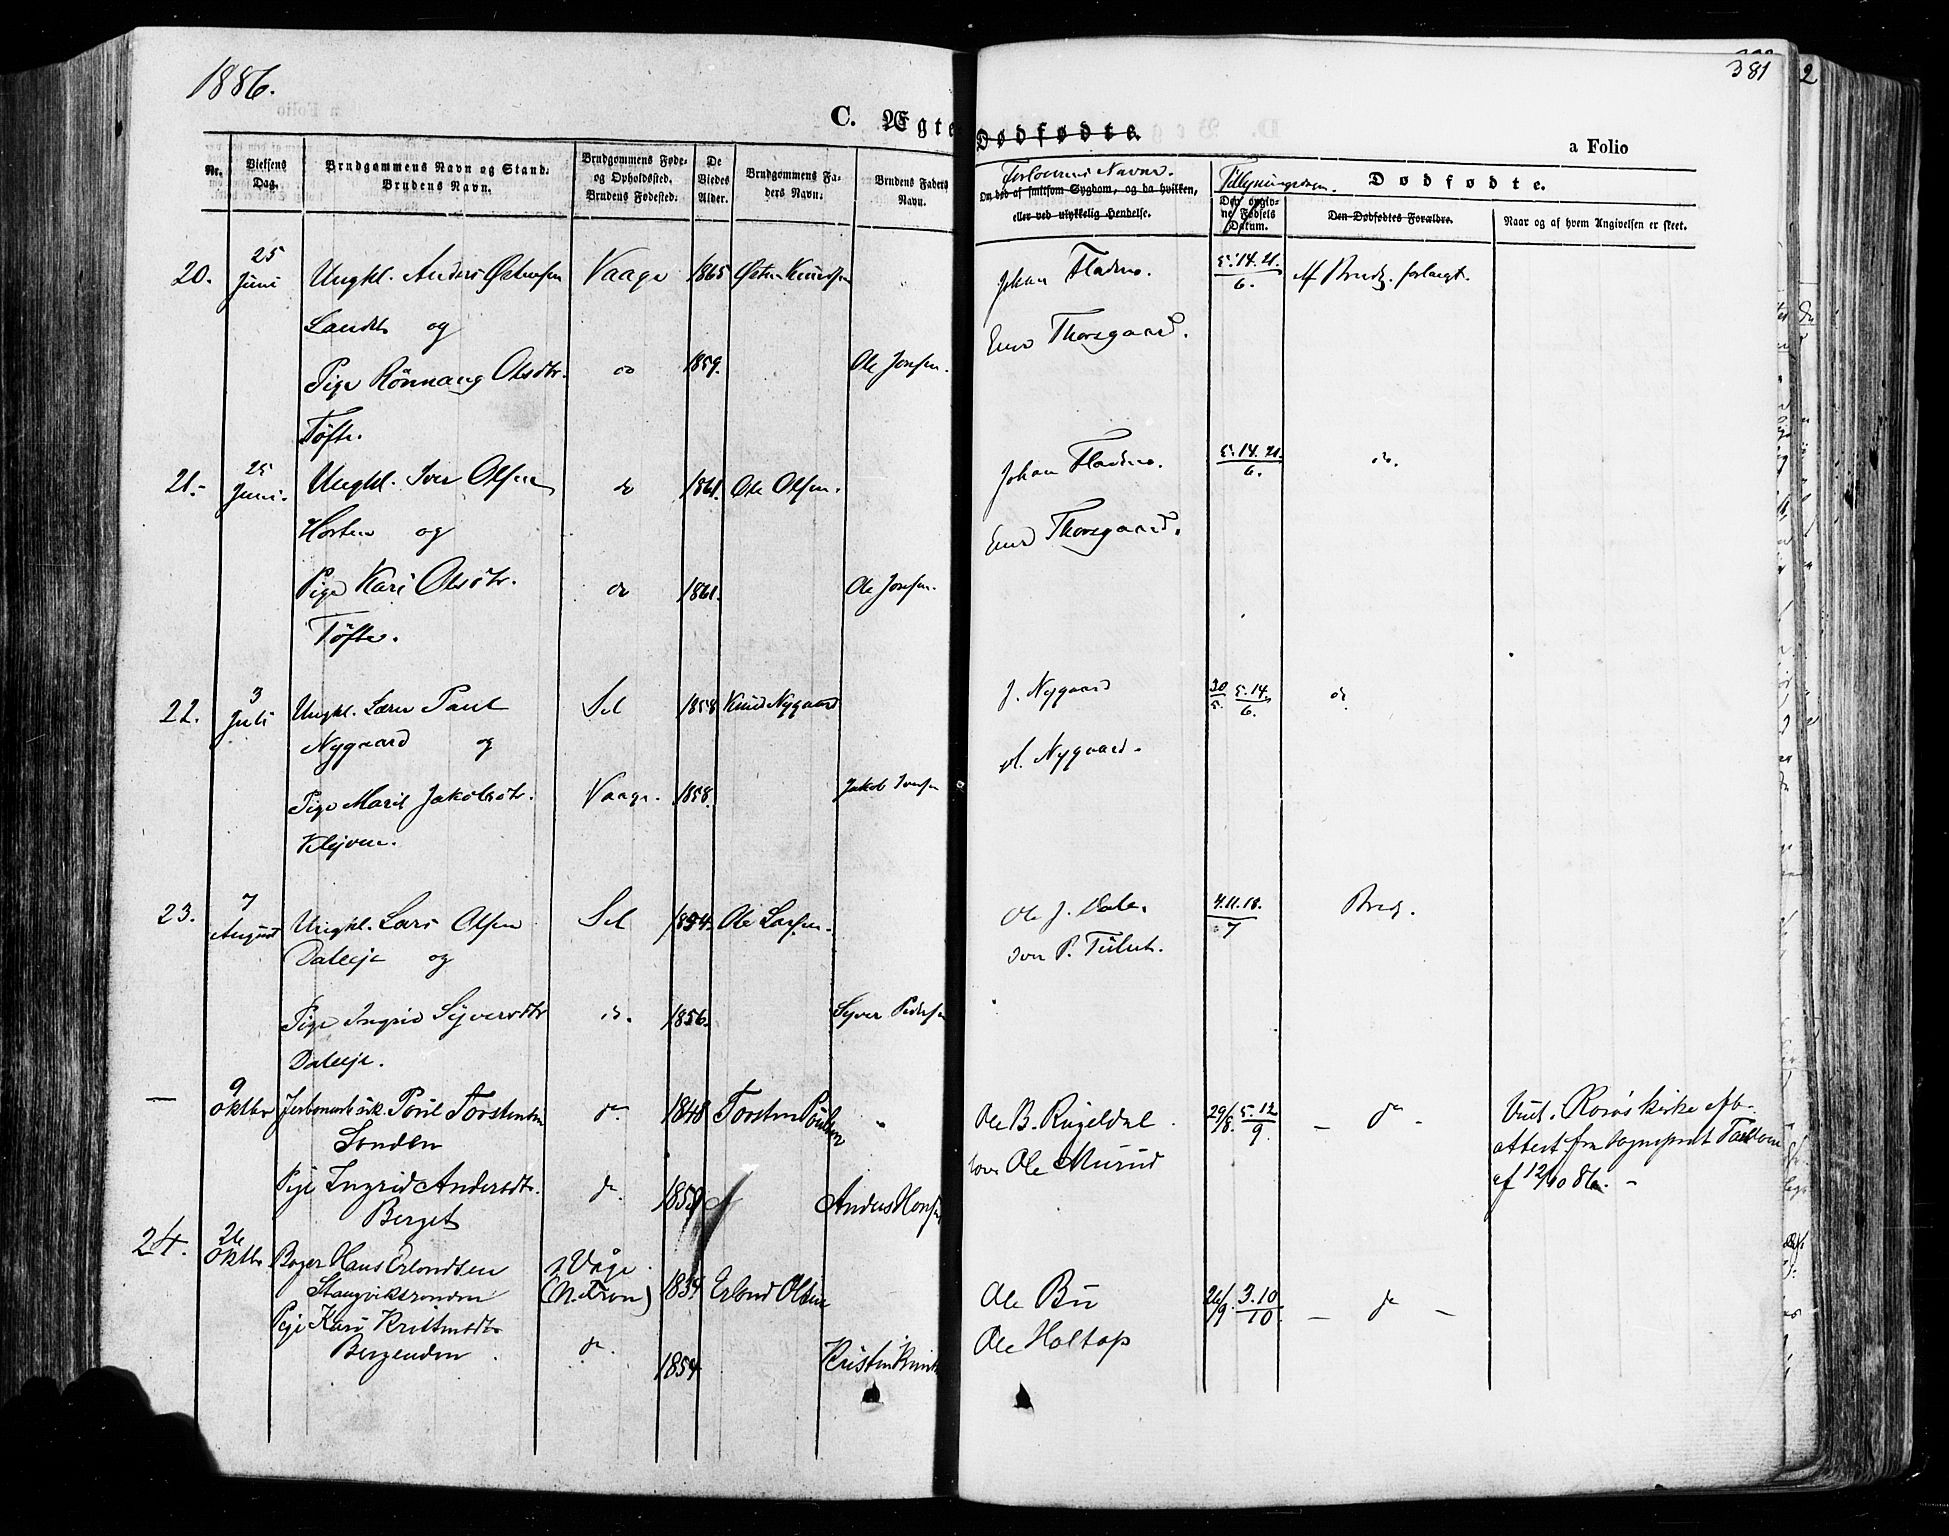 1886.
381
2
C. Ægte
Dødfødte.
a Folio
Nr.
Vielsens Dag.
Brudgommens Navn og Stand.
Brudens Navn.
Brudgommens Føde- og Opholdssted.
Brudens Fødested.
De Viedes Alder.
Brudgommens Faders Navn.
Brudens Faders Navn.
Forlovernes Navne.
Om død af smitsom Sygdom, og da hvilken,
eller ved ulykkelig Hendelse.
Tillysningsdagen.
Den opgivne Fødsels Datum.
Dødfødte.
Den Dødfødtes Forældre.
Naar og af hvem Angivelsen er skeet.
20. 25 Juni Ungkl. Anders Østensen Vaage 1865 Østen Knudsen Johan Fladmo. 5. 14. 21./6. Af Brudg. forlangt.
Sandbo og
Einar Thorsgaard.
Pige Rönnaug Olsdtr. do 1859. Ole Jonsen.
Töfte.
21.- 25 Juni. Ungkl. Iver Olsen do 1861. Ole Olsen. Johan Fladmo. 5. 14. 21./6. do.
og
Einar Thorsgaard.
Pige Kari Olsdtr. do 1861. Ole Jonsen.
Töfte.
22. 3 Juli Ungkl. Lærer Paul Sel 1858 Knud Nygaard J. Nygaard 30/5. 5. 14./6. do
Nygaard og
Nygaard.
Pige Marit Jakobsdtr. Vaage. 1858. Jakob Iversen
Kleiven.
23. 7 August Ungkl. Lars Olsen Sel 1854. Ole Larsen. Ole J. Dale. 4. 11. 18./7 Brudg.
Daleeje og
Iver P.
Pige Ingrid Syversdtr do. 1856. Syver Pedersen
Daleeje.
— 9 Oktbr Poul Torstensen do. 1848 Torsten Poulsen Ole B. Rugeldal 29/8. 5. 12/9. — do — Vied. Rørøs Kirke efter
Sonden
attest fra Sognepræst
Ole Murud
af 12/10 86. -
Pige Ingrid Andersdtr. do. 1859 Anders Hansen
Berget
24. 26 Oktbr. Hans Erlandsen Våge.
(N. Fron) 1854 Erland Olsen Ole Bu 26/9. 3. 10/10. — do —
Pige Kari Kristensdtr
Ole Holtop
Bergenden. do. 1854 Kristen